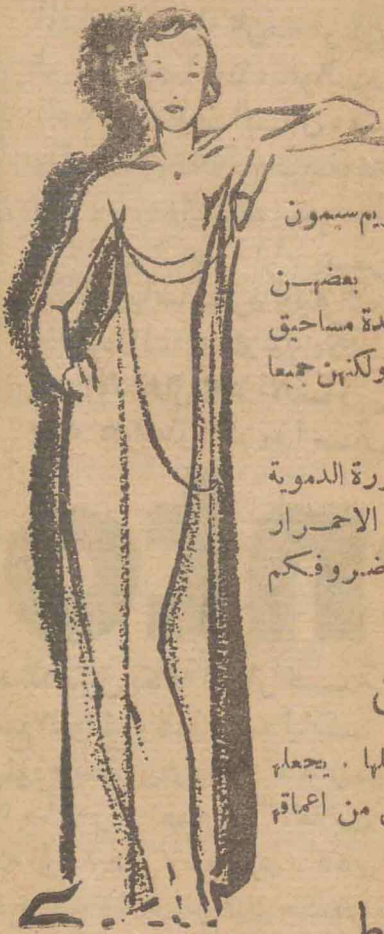 ريم سيمون
بعضهن
دة مساحيق
ولكنهن جميعا
ورة الدموية
الاحمرار
ضروفكم
لها . يجعلها
من اعماقها
ط